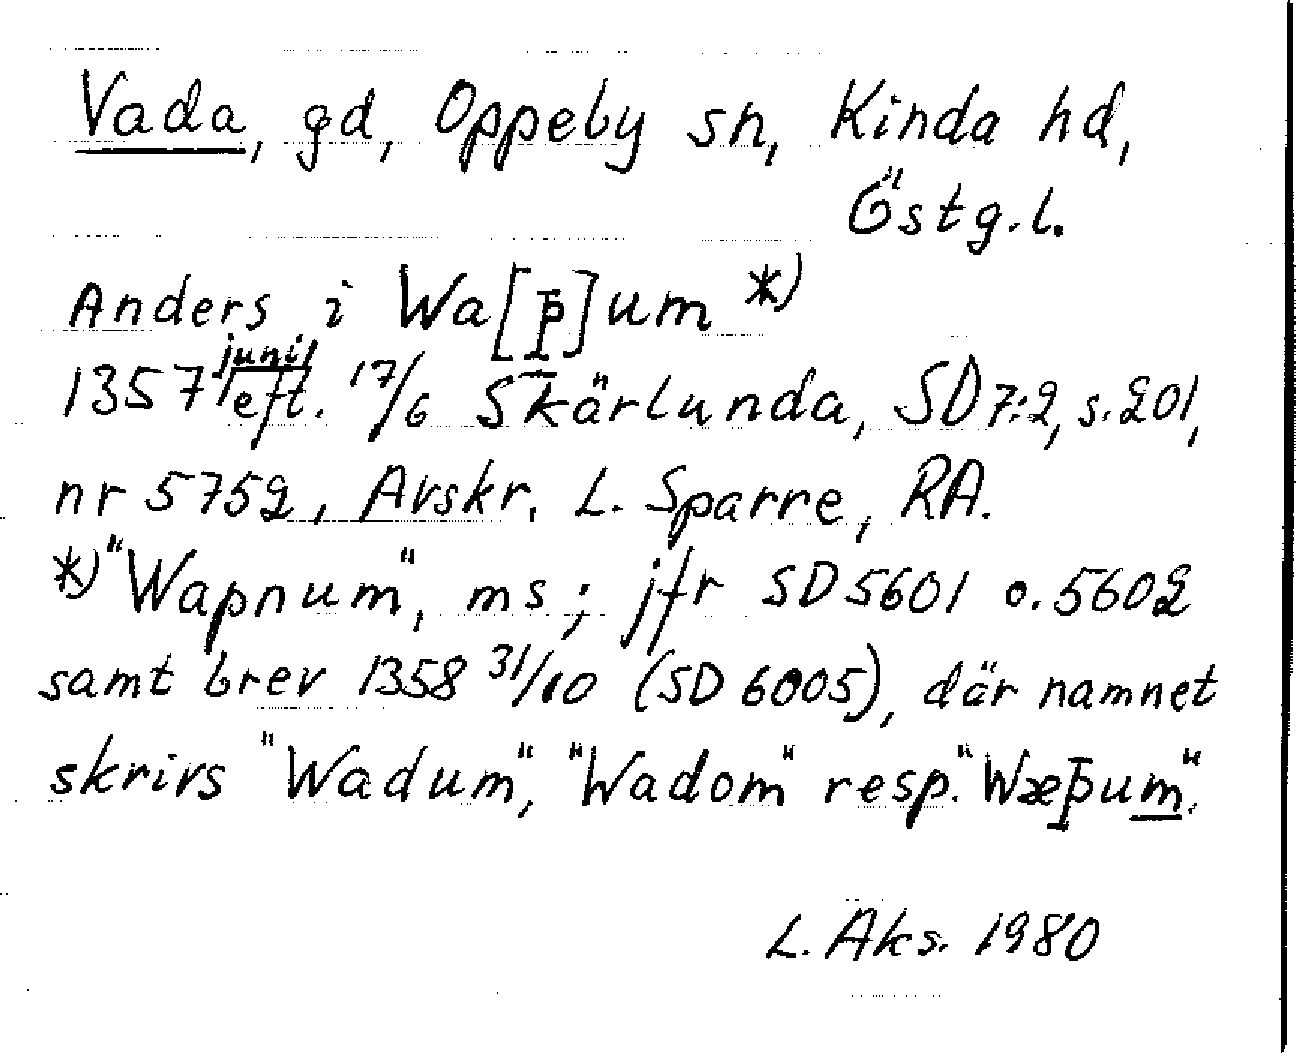 Vada, gd, Oppeby sn, Kinda hd,
Östg.l.
Anders i Wa[þ]um *)
1357 juni eft. 17/6 Skärlunda, SD 7:2, s. 201,
nr 5752, Avskr. L. Sparre, RA.
*) "Wapnum", ms; jfr SD 5601 o. 5602
samt brev 1358 31/10 (SD 6005), där namnet
skrivs "Wadum", "Wadom" resp. "Wæþum".
L. Aks. 1980